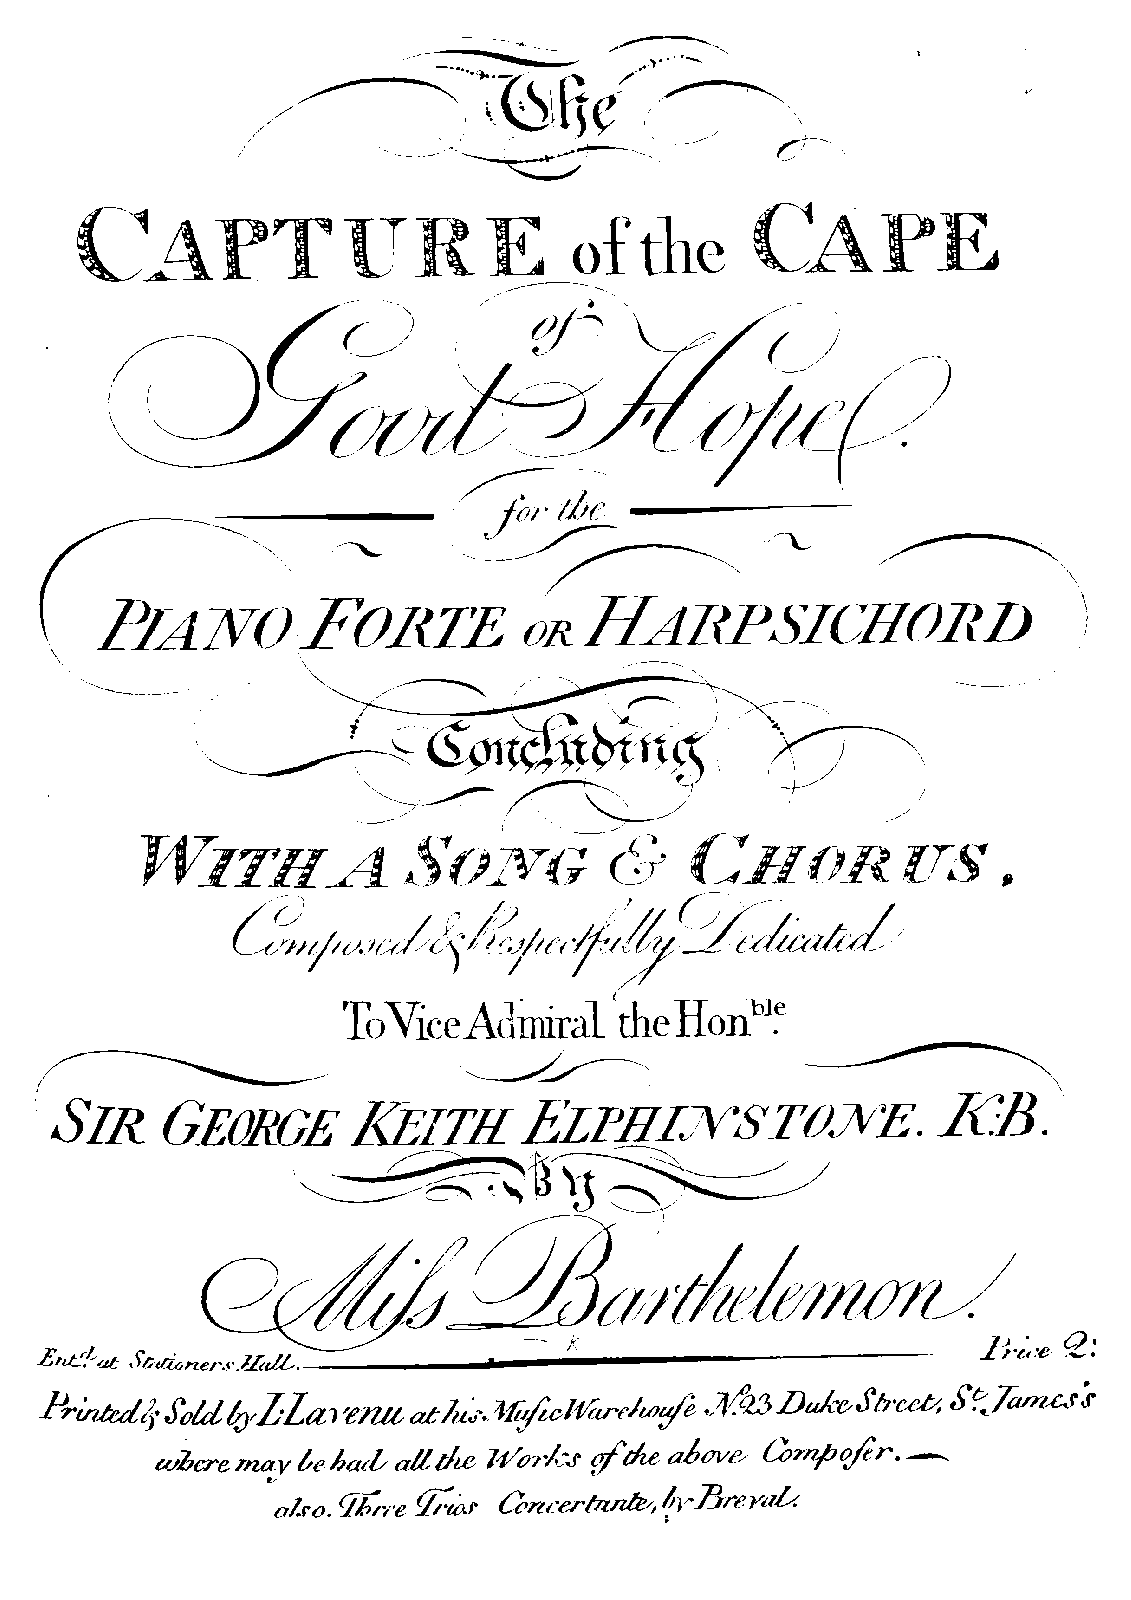 The
CAPTURE of the CAPE
of
Good Hope.
for the
PIANO FORTE OR HARPSICHORD
Concluding
WITH A SONG & CHORUS.
Composed & Respectfully Dedicated
To Vice Admiral the Hon.ble
SIR GEORGE KEITH ELPHINSTONE. K:B.
By
Miſs Barthelemon.
Ent.d at Stationers Hall. Price 2:
Printed & Sold by L: Lavenu at his Muſic Warehouſe No. 23 Duke Street, St. James's
where may be had all the Works of the above Compoſer.—
also. Three Trios Concertante, by Breval.